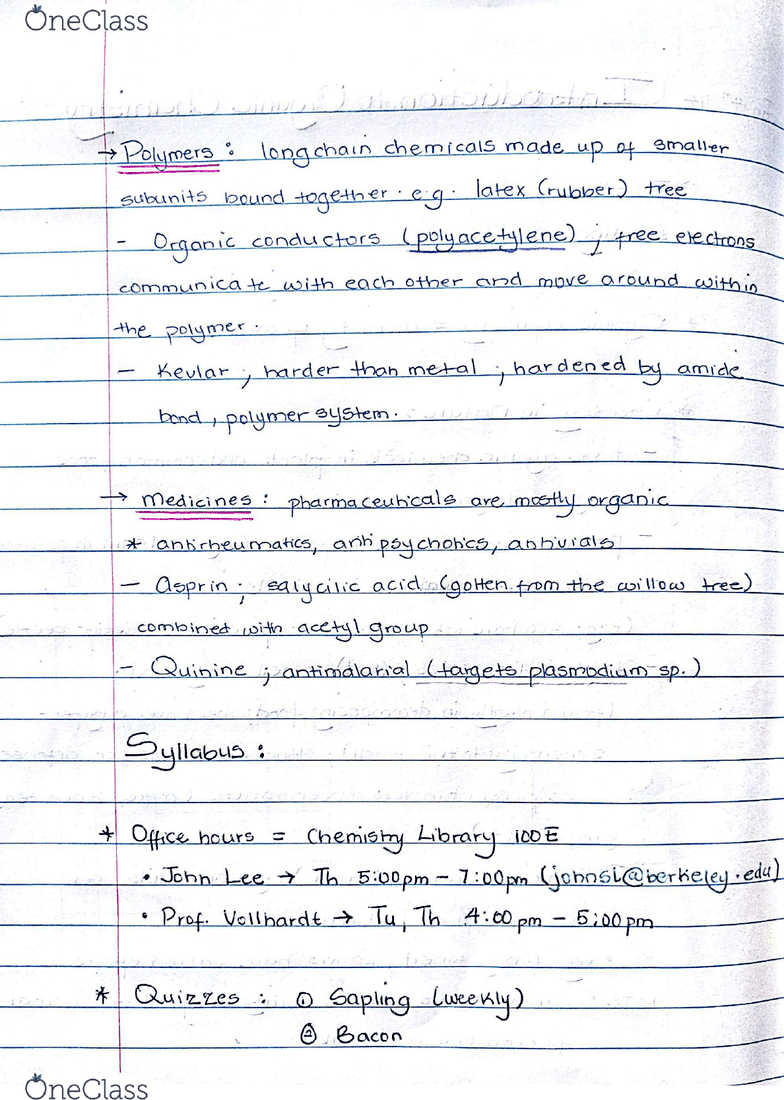 OneClass
→ Polymers : long chain chemicals made up of smaller
subunits bound together. e.g. latex (rubber) tree
- Organic conductors (polyacetylene) ; free electrons
communicate with each other and move around within
the polymer.
- Kevlar ; harder than metal ; hardened by amide
bond, polymer system.
→ Medicines : pharmaceuticals are mostly organic
* antirheumatics, antipsychotics, antivials
- Asprin ; salycilic acid (gotten from the willow tree)
combined with acetyl group
- Quinine ; antimalarial (targets plasmodium sp.)
Syllabus :
* Office hours = Chemistry Library 100E
• John Lee → Th 5:00pm - 7:00pm (johnsl@berkeley.edu)
• Prof. Vollhardt → Tu, Th 4:00 pm - 5:00pm
* Quizzes : ① Sapling (weekly)
② Bacon
OneClass